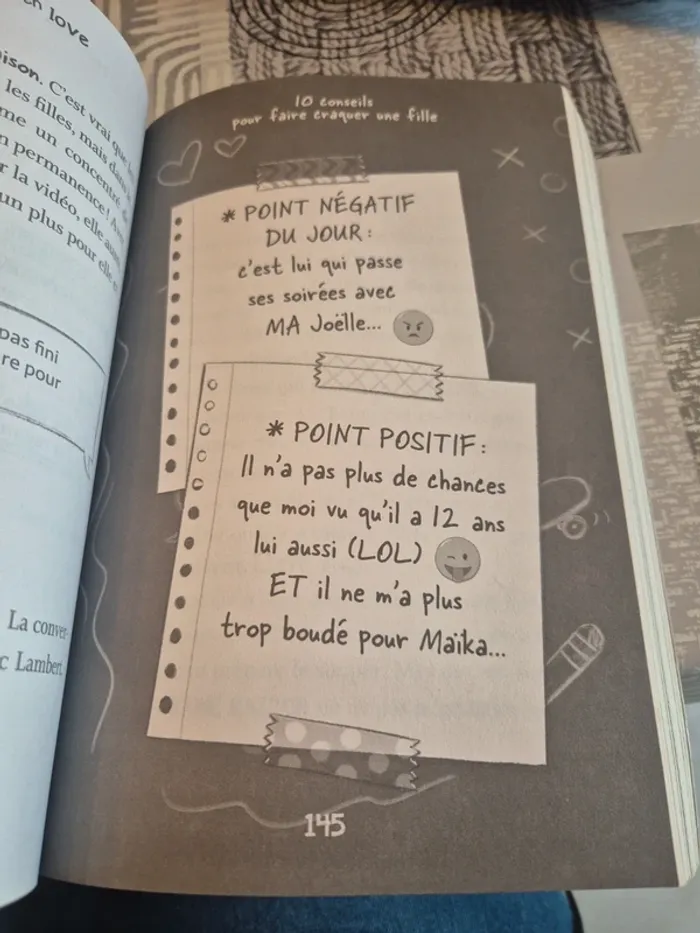 ch love
ison. C'est vrai que les
les filles, mais dans
me un concentré de
n permanence !
r la vidéo, elle
un plus pour elle
pas fini
re pour
La conver-
c Lambert.
10 conseils
pour faire craquer une fille
* POINT NÉGATIF
DU JOUR :
c'est lui qui passe
ses soirées avec
MA Joëlle...
* POINT POSITIF :
Il n'a pas plus de chances
que moi vu qu'il a 12 ans
lui aussi (LOL)
ET il ne m'a plus
trop boudé pour Maïka...
145